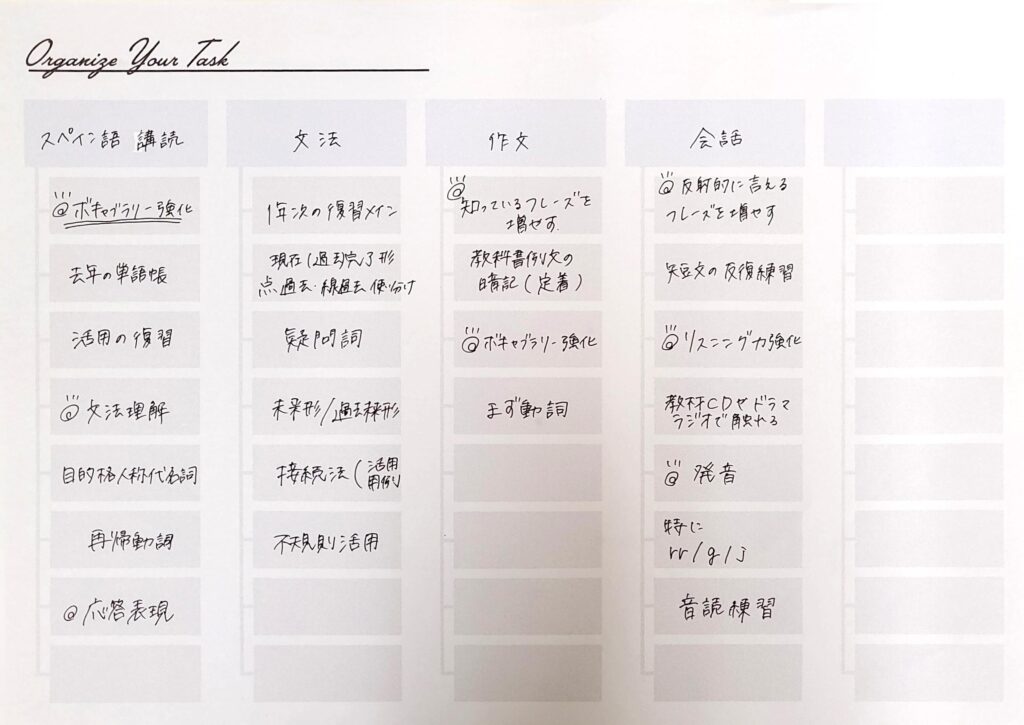 Organize Your Task
スペイン語 講読
◎ボキャブラリー強化
去年の単語帳
活用の復習
◎文法理解
目的格人称代名詞
再帰動詞
◎応答表現
文法
1年次の復習メイン
現在(過去)完了形
点過去・線過去 使い分け
疑問詞
未来形/過去未来形
接続法(活用
用例)
不規則活用
作文
◎知っているフレーズを
増やす
教科書例文の
暗記(定着)
◎ボキャブラリー強化
まず動詞
会話
◎反射的に言える
フレーズを増やす
短文の反復練習
◎リスニング力強化
教材CDやドラマ
ラジオで触れる
◎発音
特に
rr/g/j
音読練習